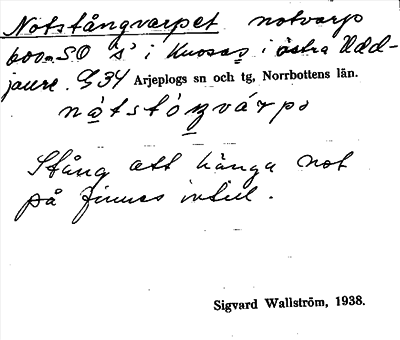 Notstångvarpet notvarp
600 m SO "s" i Knosas i östra Udd-
jaure. G34 Arjeplogs sn och tg, Norrbottens län.
nåtstóŋvárpə
Stång att hänga not
på finnes intill.
Sigvard Wallström, 1938.